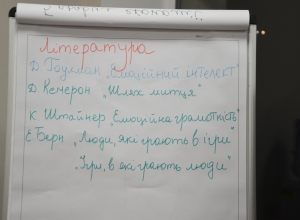 Література
Д. Гоулман „Емоційний інтелект"
Д. Кемерон „Шлях митця"
К. Штайнер „Емоційна грамотність"
Е. Берн „Люди, які грають в ігри"
„Ігри, в які грають люди"